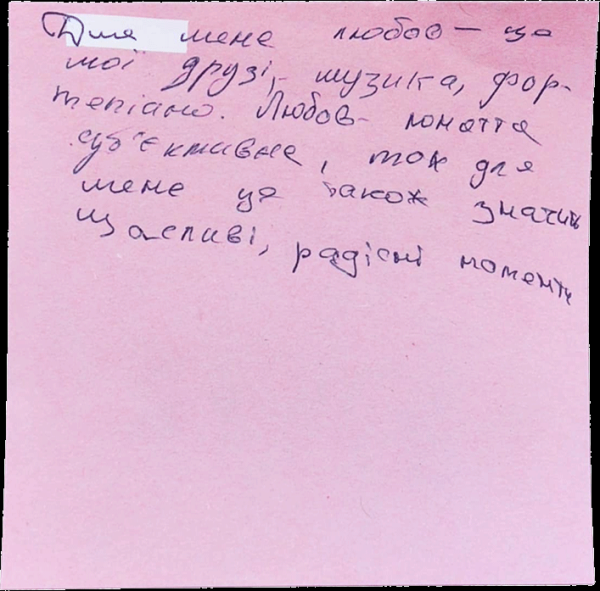 Для мене любов — це
мої друзі, музика, фор-
тепіано. Любов - поняття
суб'єктивне, тож для
мене це також значить
щасливі, радісні моменти